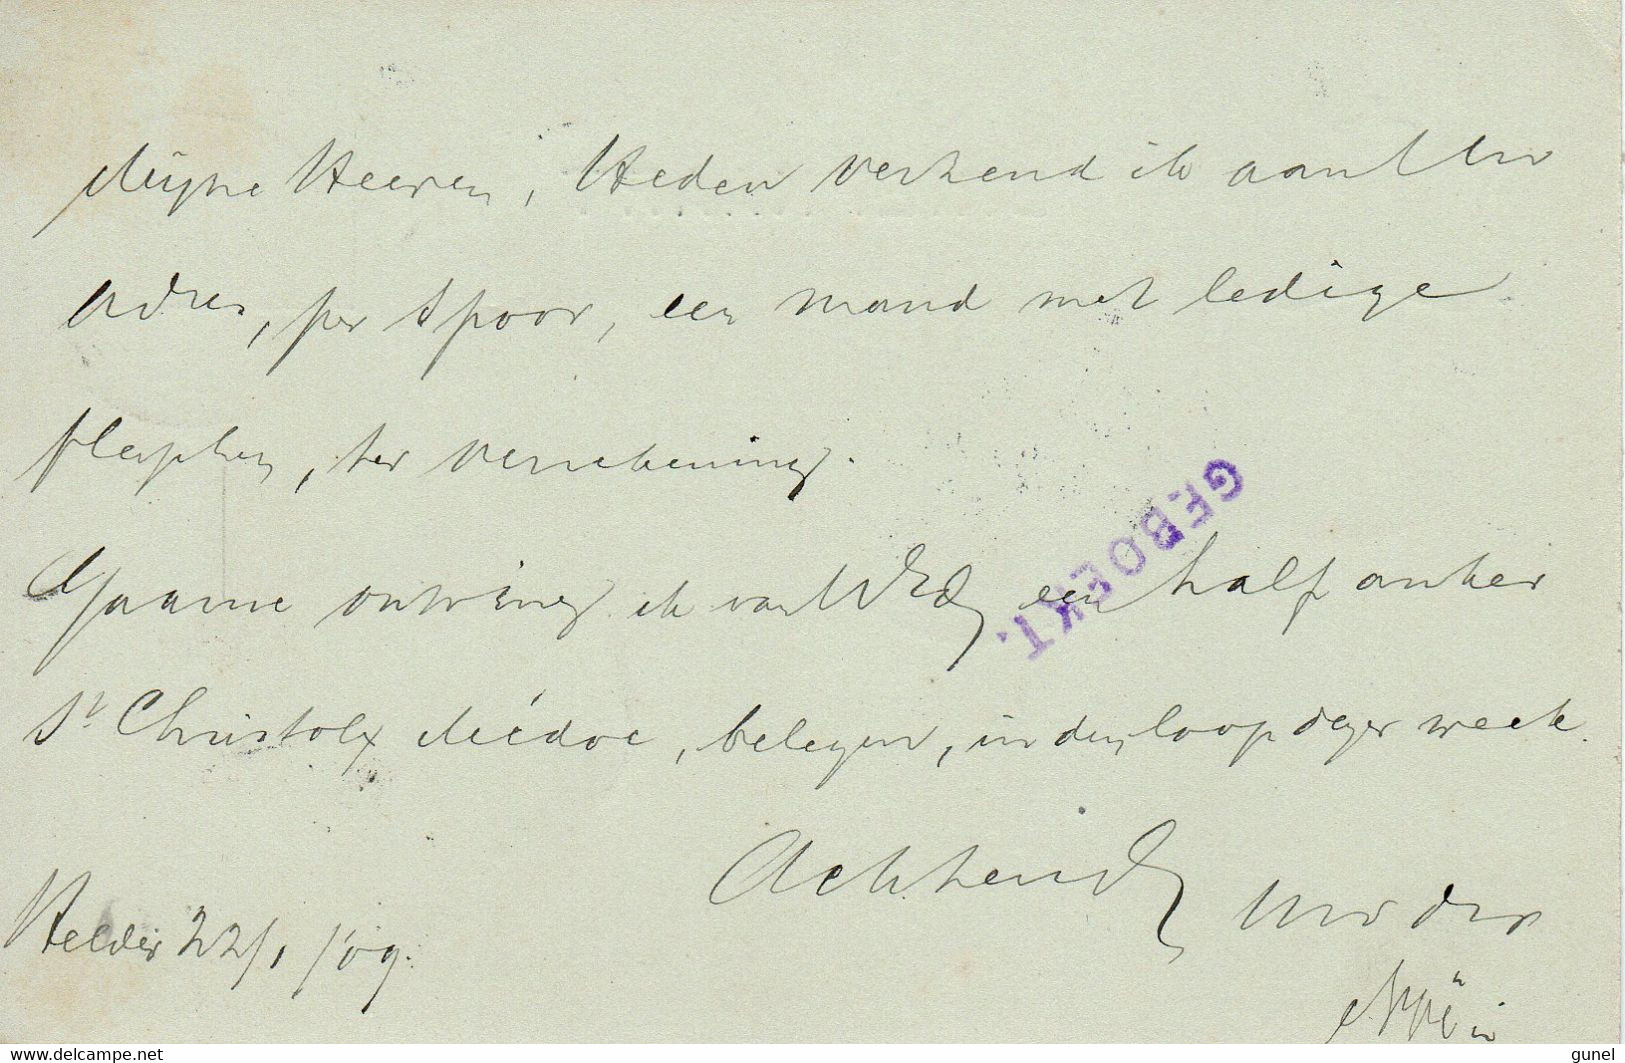 Mijne Heeren, Heden verzend ik aan Uw
adres, per spoor, een mand met ledige
flesschen, ter verrekening.
GEBOEKT.
Gaarne ontving ik van UEd, een half anker
St Christoly Médoc, belegen, in den loop dezer week.
Achtend
Uw dr
Helder 22/1/09.
www.delcampe.net
gunel